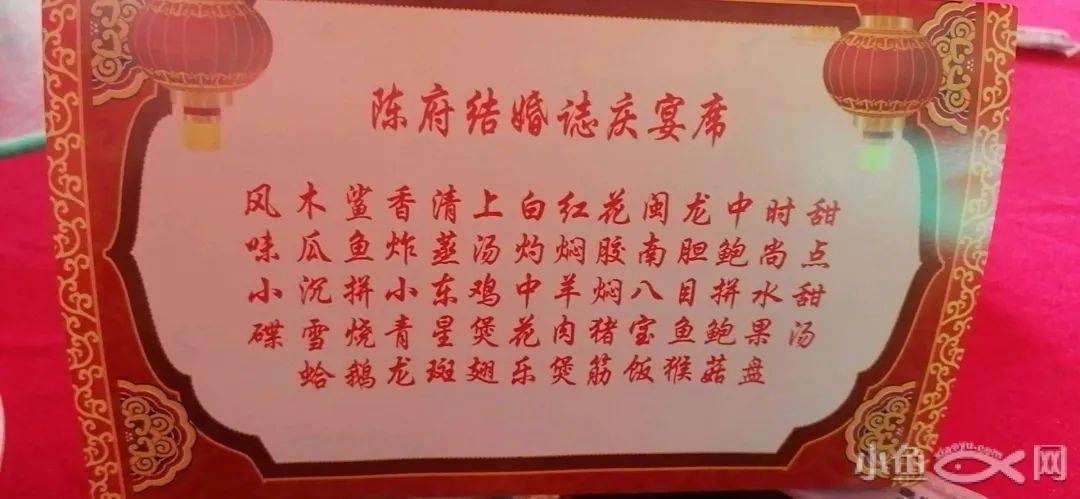 陈府结婚誌庆宴席
风味小碟
木瓜沉雪蛤
鲨鱼拼烧鹅
香炸小青龙
清蒸东星斑
上汤鸡煲翅
白灼中花乐
红焖羊肉煲
花胶焖猪筋
闽南八宝饭
龙胆目鱼猴
中鲍拼鲍菇
时尚水果盘
甜点甜汤
小鱼网
xiaoyu.com